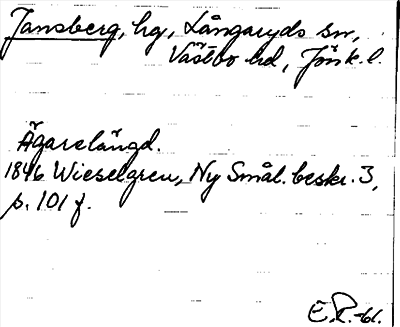 Jansberg, hg, Långaryds sn,
Västbo hd, Jönk. l.
Ägarelängd.
1846 Wieselgren, Ny Smål. beskr. 3,
p. 101 f.
E.P.-61.